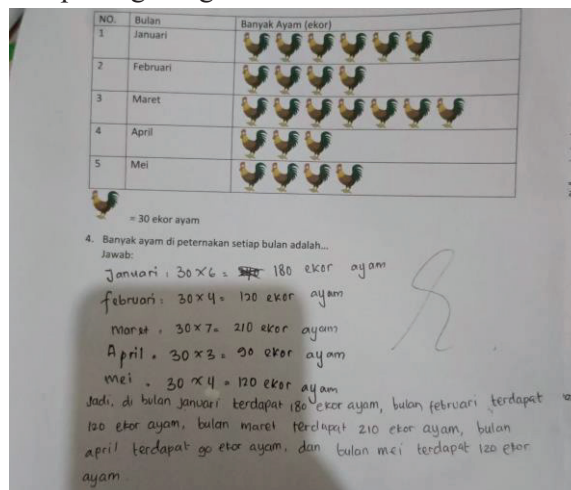 NO. Bulan Banyak Ayam (ekor)
1 Januari
2 Februari
3 Maret
4 April
5 Mei
= 30 ekor ayam
4. Banyak ayam di peternakan setiap bulan adalah...
Jawab:
Januari : 30 x 6 = 180 ekor ayam
februari : 30 x 4 = 120 ekor ayam
maret . 30 x 7 = 210 ekor ayam
April . 30 x 3 = 90 ekor ayam
mei . 30 x 4 = 120 ekor ayam
Jadi, di bulan januari terdapat 180 ekor ayam, bulan februari terdapat
120 ekor ayam, bulan maret terdapat 210 ekor ayam, bulan
april terdapat 90 ekor ayam, dan bulan mei terdapat 120 ekor
ayam